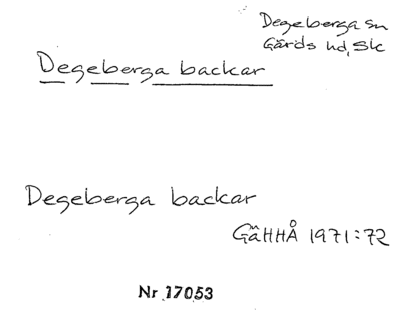 Degeberga sn
Gärds hd, Sk
Degeberga backar
Degeberga backar
GäHHÅ 1971:72
Nr 17053